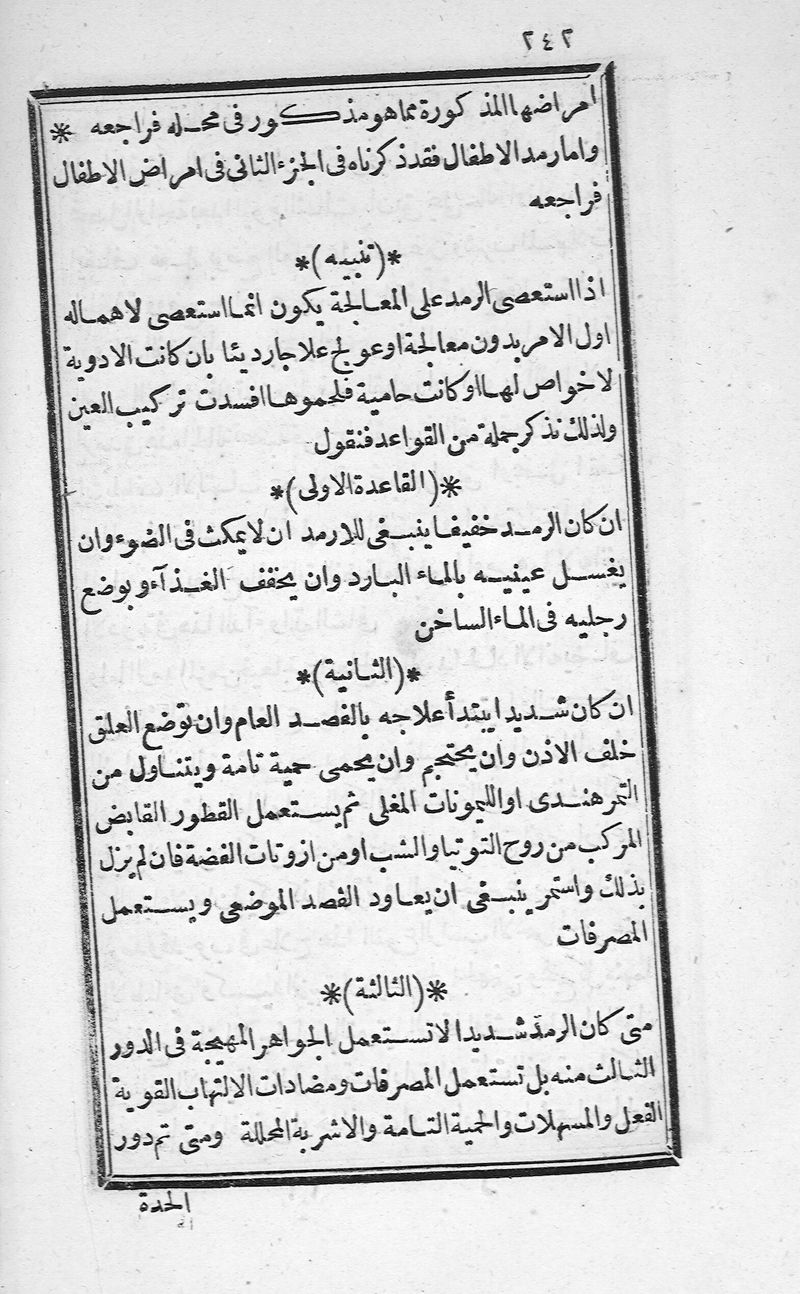 ٢٤٢
امراضها المذكورة مما هو مذكور فى محله فراجعه *
واما رمد الاطفال فقد ذكرناه فى الجزء الثانى فى امراض الاطفال
فراجعه
*(تنبيه)*
اذا استعصى الرمد على المعالجة يكون انما استعصى لاهماله
اول الامر بدون معالجة او عولج علاجا رديئا بان كانت الادوية
لا خواص لها او كانت حامية فلحموها افسدت تركيب العين
ولذلك نذكر جملة من القواعد فنقول
*(القاعدة الاولى)*
ان كان الرمد خفيفا ينبغى للارمد ان لا يمكث فى الضوء وان
يغسل عينيه بالماء البارد وان يخفف الغذآء ويوضع
رجليه فى الماء الساخن
*(الثانية)*
ان كان شديدا يبتدأ علاجه بالفصد العام وان توضع العلق
خلف الاذن وان يحتجم وان يحمى حمية تامة ويتناول من
التمر هندى او الليمونات المغلى ثم يستعمل القطور القابض
المركب من روح التوتيا والشب او من ازوتات الفضة فان لم يزل
بذلك واستمر ينبغى ان يعاود الفصد الموضعى ويستعمل
المصرفات
*(الثالثة)*
متى كان الرمد شديدا لا تستعمل الجواهر المهيجة فى الدور
الثالث منه بل تستعمل المصرفات ومضادات الالتهاب القوية
الفعل والمسهلات والحمية التامة والاشربة المحللة ومتى تم دور
الحدة